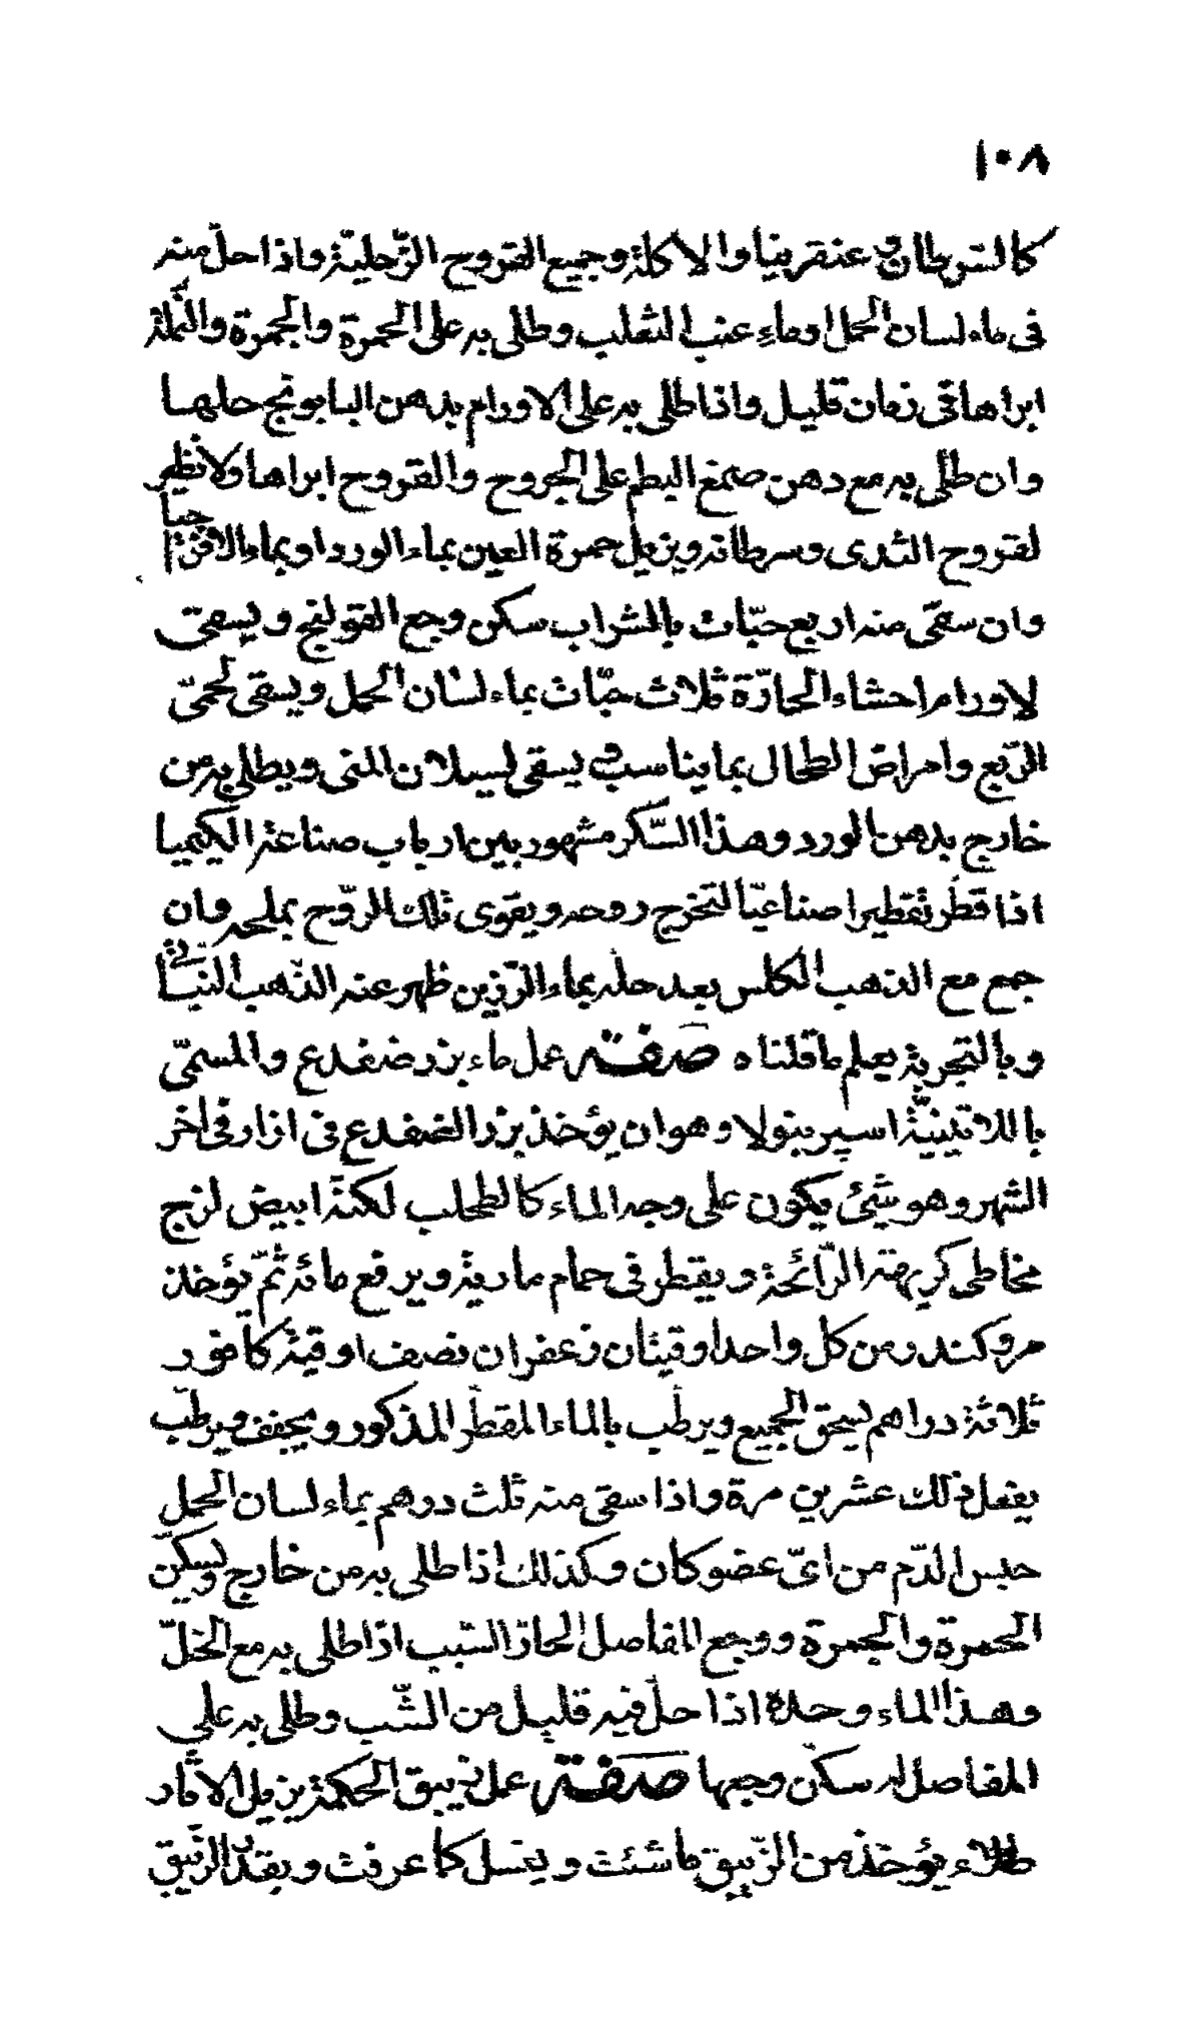 ١٠٨
كالسرطان وعنقرينيا والاكلة وجميع القروح الزّحليّة واذا حلّ منه
فى ماء لسان الحمل اوماء عنب الثعلب وطلى به على الحمرة والجمرة والنّملة
ابراها فى زمان قليل واذا طلى به على الاورام بدهن البابونج حلها
وان طلى به مع دهن صمغ البطم على الجروح والقروح ابراها ولانظير
لقروح الثدى وسرطانه ويزيل حمرة العين بماء الورد او بماء الافرنجيا
وان سقى منه اربع حبّات بالشراب سكن وجع القولنج ويسقى
لاورام احشاء الحارّة ثلاث حبّات بماء لسان الحمل ويسقى لحمّى
الرّبع وامراض الطحال بما يناسب ويسقى لسيلان المنى ويطلى به من
خارج بدهن الورد وهذا السّكر مشهور بين ارباب صناعة الكيميا
اذا قطّر تقطيرا صناعيّا لتخرج روحه ويقوى تلك الرّوح بملحه وان
جمع مع الذهب المكلس بعد حلّه بماء الرّزين ظهر عنه الذّهب النّباتى
وبالتجربة يعلم ما قلناه صفة عمل ماء بزر ضفدع والمسمّى
باللاتينيّة اسپرينولا وهو ان يؤخذ بزر الضفدع فى ازار فى اخر
الشهر وهو شئ يكون على وجه الماء كالطحلب لكنّه ابيض لزج
مخاطى كريهة الرّائحة ويقطر فى حمام مارية ويرفع مائه ثمّ يؤخذ
مر وكندر من كل واحد اوقيتان زعفران نصف اوقية كافور
ثلاثة دراهم يسحق الجميع ويرطّب بالماء المقطّر المذكور ويجفف ويرطّب
يفعل ذلك عشرين مرة واذا سقى منه ثلث درهم بماء لسان الحمل
حبس الدّم من اىّ عضو كان وكذلك اذا طلى به من خارج ويسكّن
الحمرة والجمرة ووجع المفاصل الحارّ السّبب اذا طلى به مع الخلّ
وهذا الماء وحده اذا حلّ فيه قليل من الشّب وطلى به على
المفاصل له سكّن وجعها صفة عمل زيبق الحكمة يزيل الاثار
طلاء يؤخذ من الزّيبق ما شئت ويغسل كما عرفت وبقدر الزّيبق